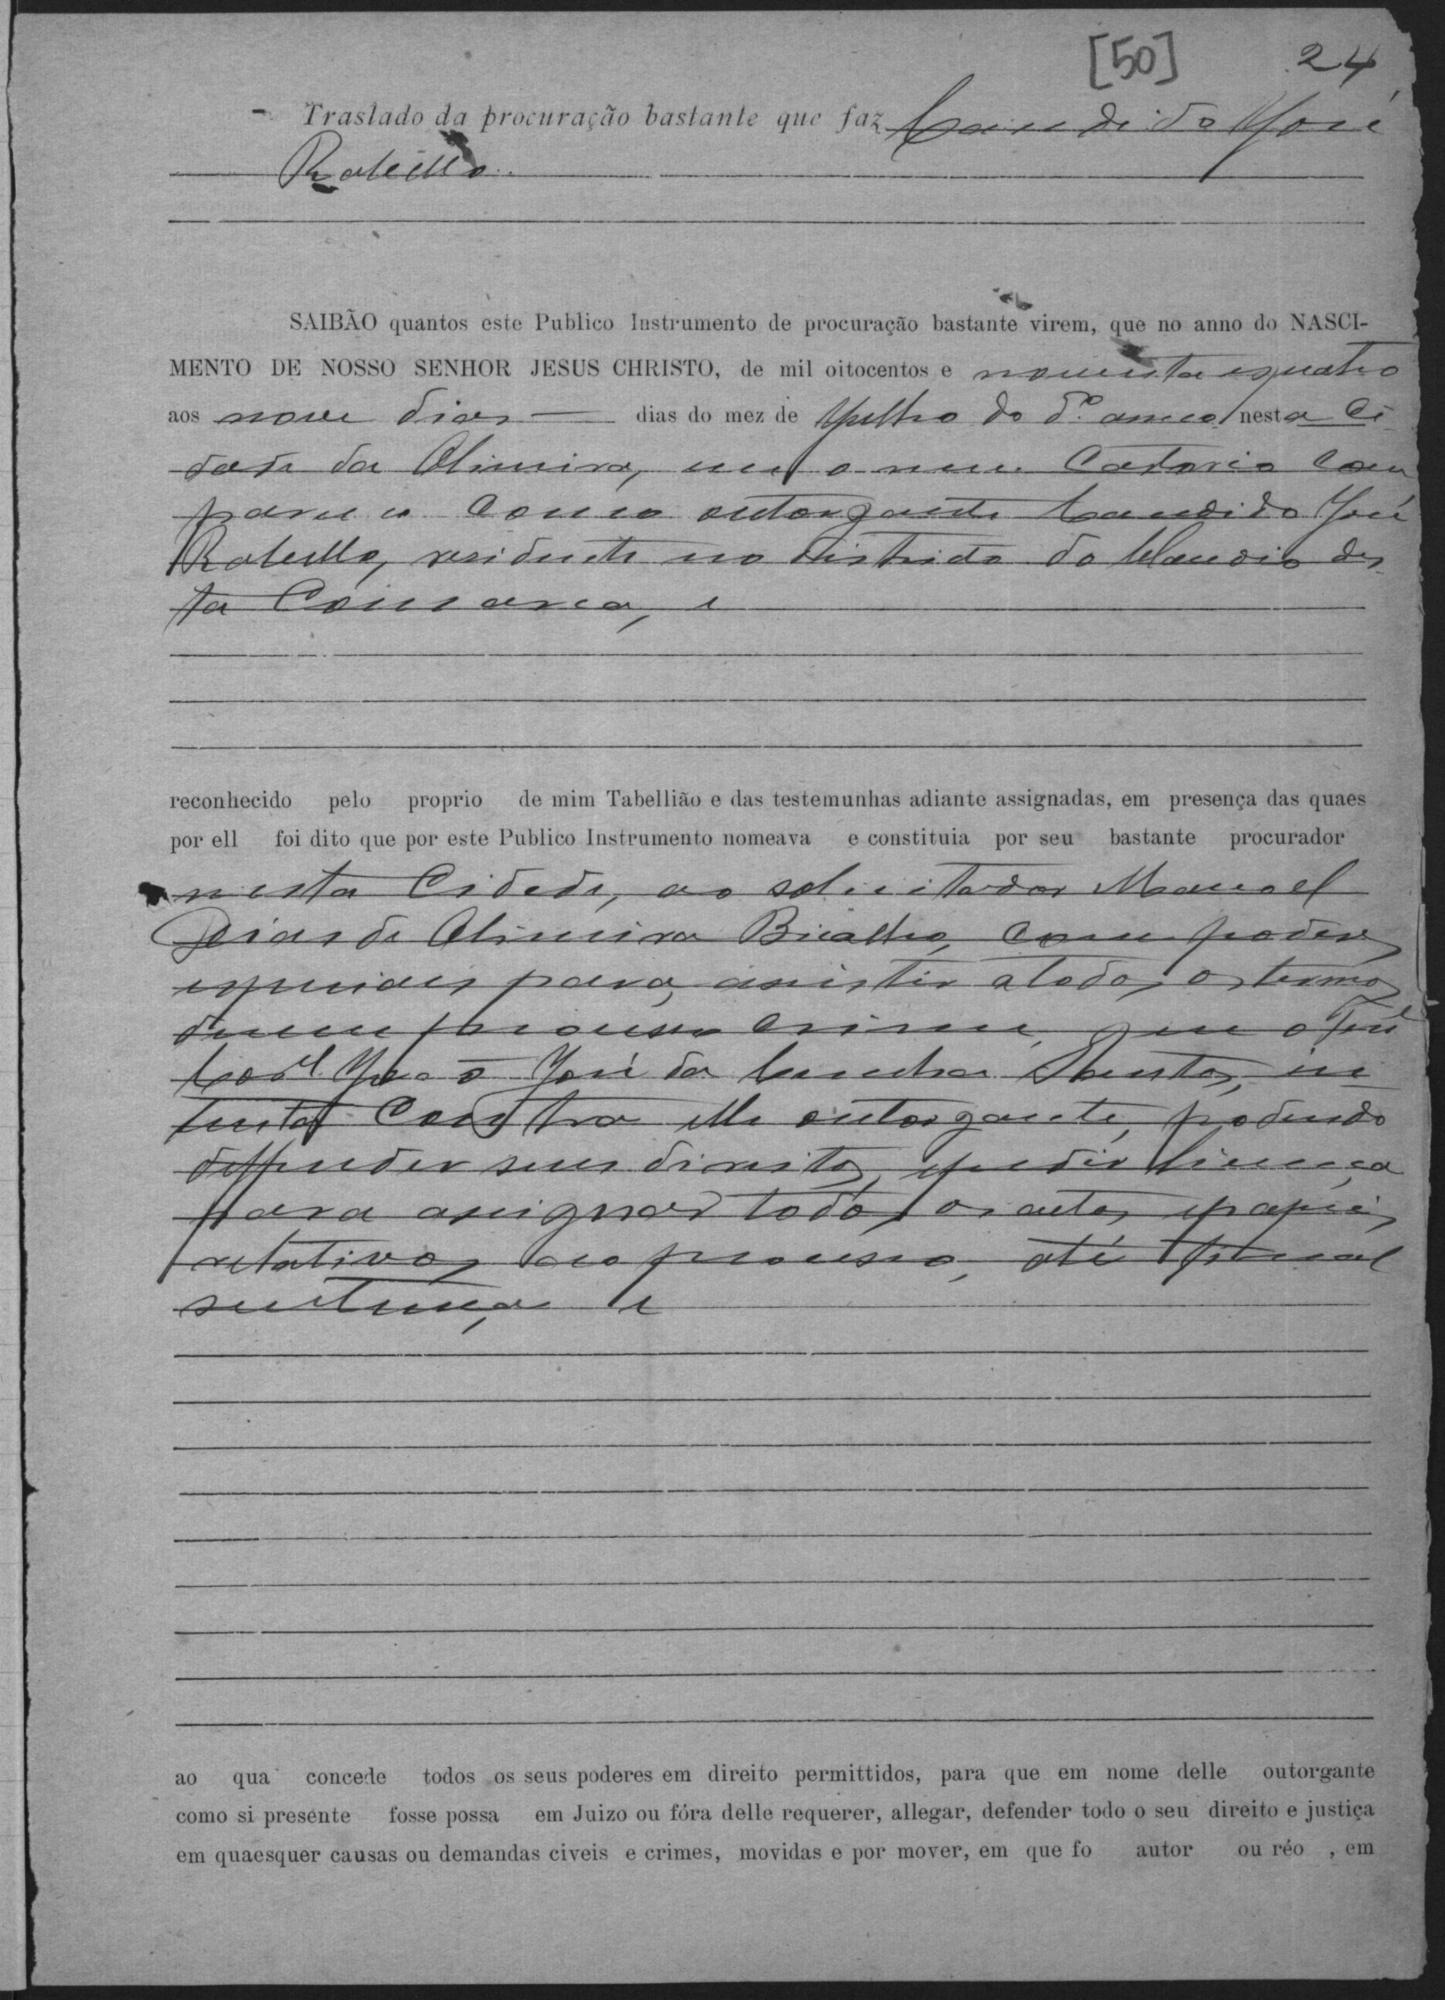 [50] 24
Traslado da procuração bastante que faz Candido José
Rabello.
SAIBÃO quantos este Publico Instrumento de procuração bastante virem, que no anno do NASCI-
MENTO DE NOSSO SENHOR JESUS CHRISTO, de mil oitocentos e noventa e quatro
aos nove dias dias do mez de Julho do dº anno nesta Ci
dade da Oliveira, em o meu Cartorio com
pareceu como outorgante Candido José
Rabello, residente no districto do Claudio des
ta Comarca, e
reconhecido pelo proprio de mim Tabellião e das testemunhas adiante assignadas, em presença das quaes
por ell foi dito que por este Publico Instrumento nomeava e constituia por seu bastante procurador
nesta Cidade, ao solicitador Manoel
Dias de Oliveira Bicalho, com poderes
especiais para assistir a todos os termos
de um processo crime que o Tenᵉ
Corᵉˡ João José da Cunha Santos, in
tenta contra elle outorgante, podendo
deffender seus direitos, e pedir licença
para assignar todos os autos e papeis
relativos ao processo, até final
sentença e
ao qua concede todos os seus poderes em direito permittidos, para que em nome delle outorgante
como si presente fosse possa em Juizo ou fóra delle requerer, allegar, defender todo o seu direito e justiça
em quaesquer causas ou demandas civeis e crimes, movidas e por mover, em que fo autor ou réo , em